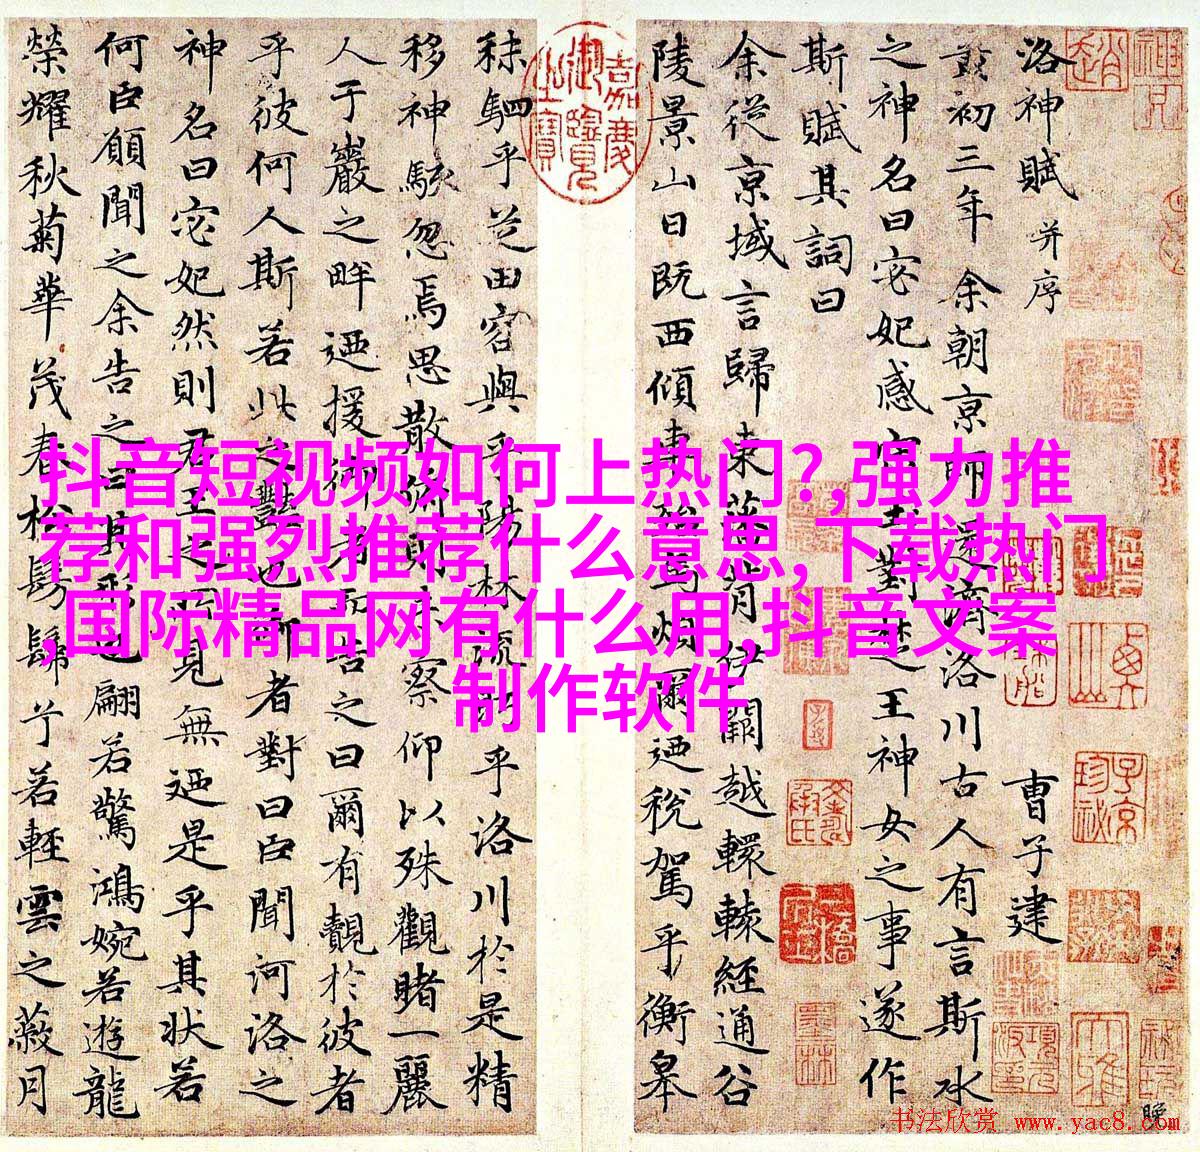 洛神賦 并序
曹子建
黃初三年余朝京師還濟洛川古人有言斯水
之神名曰宓妃感宋玉對楚王神女之事遂作
斯賦其詞曰
余從京域言歸東藩背伊闕越轘轅經通谷
陵景山日既西傾車殆馬煩爾迺稅駕乎衡皋
秣駟乎芝田容與乎陽林流眄乎洛川於是精
移神駭忽焉思散俯則未察仰以殊觀睹一麗
人于巖之畔迺援御者而告之曰爾有覿於彼者
乎彼何人斯若此之豔也御者對曰臣聞河洛之
神名曰宓妃然則君王之所見無迺是乎其狀若
何臣願聞之余告之曰其形也翩若驚鴻婉若遊龍
榮耀秋菊華茂春松髣髴兮若輕雲之蔽月
嘉慶御覽之寶
抖音短视频如何上热门?,强力推
荐和强烈推荐什么意思,下载热门
,国际精品网有什么用,抖音文案
制作软件
书法欣赏 www.yac8.com